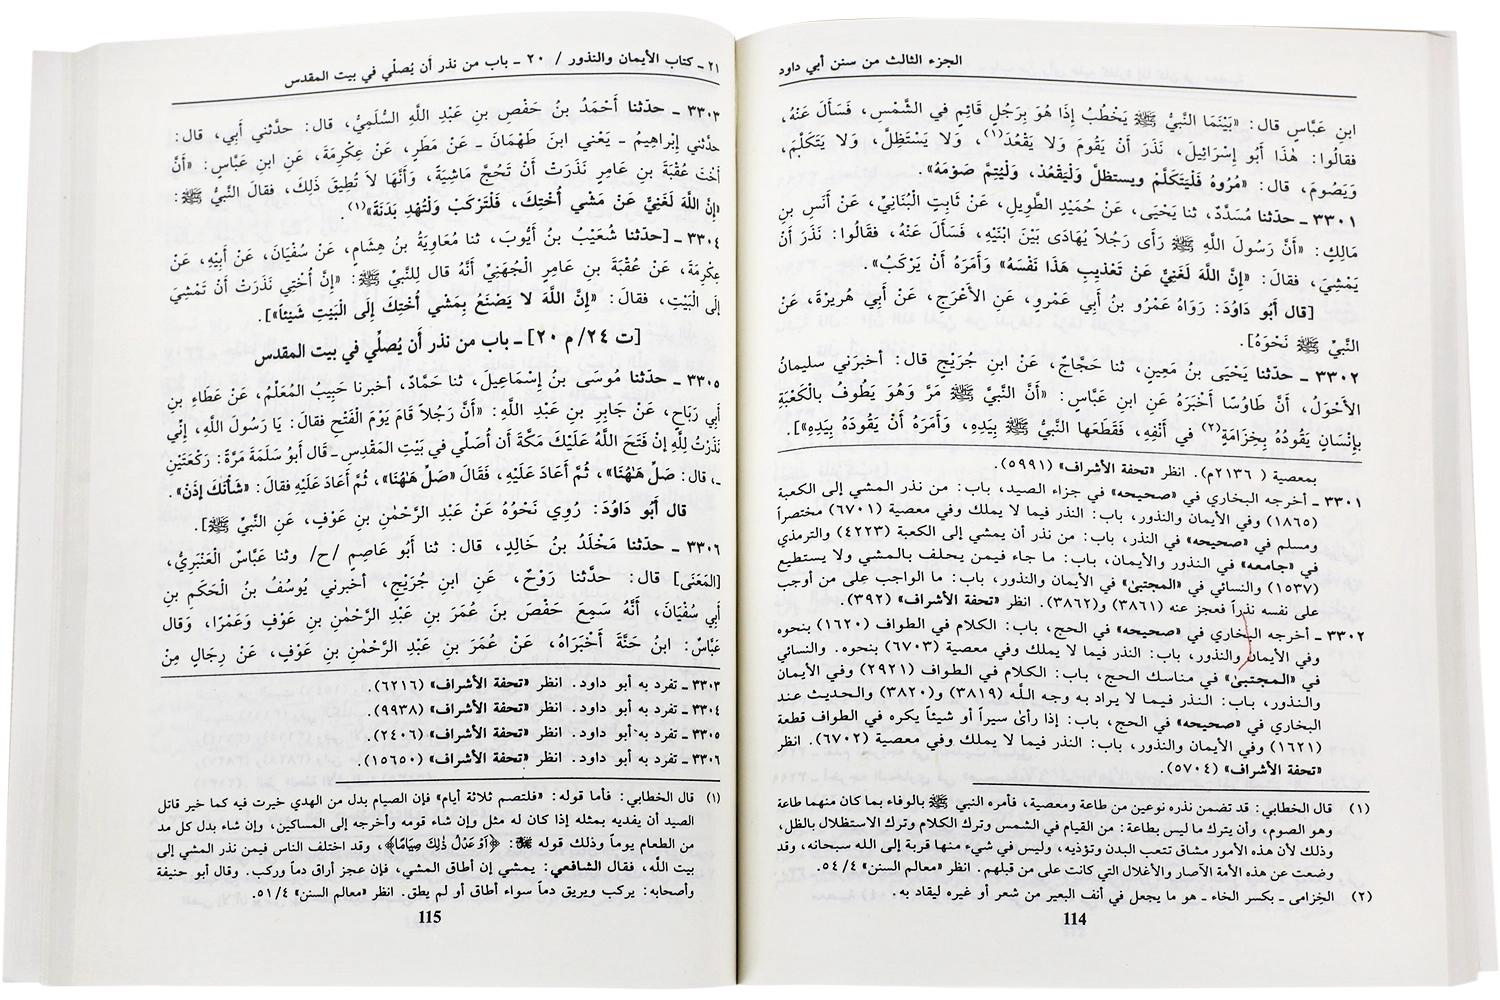 الجزء الثالث من سنن أبي داود
ابنِ عَبَّاسٍ قال: «بَيْنَمَا النَّبيُّ ﷺ يَخْطُبُ إذَا هُوَ بِرَجُلٍ قائِمٍ في الشَّمْسِ، فَسَأَلَ عَنْهُ،
فقالُوا: هٰذَا أَبو إِسْرَائِيلَ، نَذَرَ أَنْ يَقُومَ وَلا يَقْعُدَ(١)، وَلا يَسْتَظِلَّ، وَلا يَتَكَلَّمَ،
وَيَصُومَ، قال: «مُرُوهُ فَلْيَتَكَلَّمْ ويستظلَّ وَلْيَقْعُدْ، وَلْيُتِمَّ صَوْمَهُ».
٣٣٠١ ـ حدّثنا مُسَدَّدٌ، ثنا يَحْيَى، عَنْ حُمَيْدٍ الطَّوِيلِ، عَنْ ثَابِتٍ الْبُنَانِيِّ، عَنْ أَنَسِ بنِ
مَالِكٍ: «أَنَّ رَسُولَ اللَّهِ ﷺ رَأَى رَجُلاً يُهَادَى بَيْنَ ابْنَيْهِ، فَسَأَلَ عَنْهُ، فقالُوا: نَذَرَ أَنْ
يَمْشِيَ، فقالَ: «إِنَّ اللَّهَ لَغَنِيٌّ عَنْ تَعْذِيبِ هَذَا نَفْسَهُ» وَأَمَرَهُ أَنْ يَرْكَبُ».
[قال أَبُو دَاوُدَ: رَوَاهُ عَمْرُو بنُ أَبي عَمْرٍو، عَنِ الأَعْرَجِ، عَنْ أَبِي هُرِيرْةَ، عَنْ
النَّبيِّ ﷺ نَحْوَهُ].
٣٣٠٢ ـ حدّثنا يَحْيَى بنُ مَعِينٍ، ثنا حَجَّاجٌ، عَنْ ابنِ جُرَيْجٍ قال: أخبرَني سليمانُ
الأَحْوَلُ، أَنَّ طَاوُسًا أَخْبَرَهُ عَنِ ابنِ عَبَّاسٍ: «أَنَّ النَّبيَّ ﷺ مَرَّ وَهُوَ يَطُوفُ بالْكَعْبَةِ
بإنْسَانٍ يَقُودُهُ بِخِزَامَةٍ(٢) في أَنْفِهِ، فَقَطَعَها النَّبيُّ ﷺ بِيَدِهِ، وَأَمَرَهُ أَنْ يَقُودَهُ بِيَدِهِ»].
بمعصية (٢١٣٦م). انظر «تحفة الأشراف» (٥٩٩١).
٣٣٠١ ـ أخرجه البخاري في «صحيحه» في جزاء الصيد، باب: من نذر المشي إلى الكعبة
(١٨٦٥) وفي الأيمان والنذور، باب: النذر فيما لا يملك وفي معصية (٦٧٠١) مختصراً
ومسلم في «صحيحه» في النذر، باب: من نذر أن يمشي إلى الكعبة (٤٢٢٣) والترمذي
في «جامعه» في النذور والأيمان، باب: ما جاء فيمن يحلف بالمشي ولا يستطيع
(١٥٣٧) والنسائي في «المجتبىٰ» في الأيمان والنذور، باب: ما الواجب على من أوجب
على نفسه نذراً فعجز عنه (٣٨٦١) و(٣٨٦٢). انظر «تحفة الأشراف» (٣٩٢).
٣٣٠٢ ـ أخرجه البخاري في «صحيحه» في الحج، باب: الكلام في الطواف (١٦٢٠) بنحوه
وفي الأيمان والنذور، باب: النذر فيما لا يملك وفي معصية (٦٧٠٣) بنحوه. والنسائي
في «المجتبىٰ» في مناسك الحج، باب: الكلام في الطواف (٢٩٢١) وفي الأيمان
والنذور، باب: النذر فيما لا يراد به وجه اللَّه (٣٨١٩) و(٣٨٢٠) والحديث عند
البخاري في «صحيحه» في الحج، باب: إذا رأىٰ سيراً أو شيئاً يكره في الطواف قطعة
(١٦٢١) وفي الأيمان والنذور، باب: النذر فيما لا يملك وفي معصية (٦٧٠٢). انظر
«تحفة الأشراف» (٥٧٠٤).
(١) قال الخطابي: قد تضمن نذره نوعين من طاعة ومعصية، فأمره النبي ﷺ بالوفاء بما كان منهما طاعة
وهو الصوم، وأن يترك ما ليس بطاعة: من القيام في الشمس وترك الكلام وترك الاستظلال بالظل،
وذلك لأن هذه الأمور مشاق تتعب البدن وتؤذيه، وليس في شيء منها قربة إلى الله سبحانه، وقد
وضعت عن هذه الأمة الآصار والأغلال التي كانت على من قبلهم. انظر «معالم السنن» ٥٤/٤.
(٢) الخِزامى ـ بكسر الخاء ـ هو ما يجعل في أنف البعير من شعر أو غيره ليقاد به.
114
٢١ ـ كتاب الأيمان والنذور / ٢٠ ـ باب من نذر أَن يُصلّي في بيت المقدس
٣٣٠٣ ـ حدّثنا أَحْمَدُ بنُ حَفْصِ بنِ عَبْدِ اللَّهِ السُّلَمِيُّ، قال: حدَّثني أَبِي، قال:
حدَّثني إِبْراهِيمُ ـ يَعْني ابنَ طَهْمَانَ ـ عَنْ مَطَرٍ، عَنْ عِكْرِمَةَ، عَنِ ابنِ عَبَّاسٍ: «أَنَّ
أُخْتَ عُقْبَةَ بنِ عامِرٍ نَذَرَتْ أَنْ تَحُجَّ مَاشِيَةً، وَأَنَّهَا لاَ تُطِيقُ ذَلِكَ، فقالَ النَّبيُّ ﷺ:
«إِنَّ اللَّهَ لَغَنِيٌّ عَنْ مَشْيِ أُخْتِكَ، فَلْتَرْكَبْ وَلْتُهْدِ بَدَنَةً»(١).
٣٣٠٤ ـ [حدّثنا شُعَيْبُ بنُ أَيُّوبَ، ثنا مُعَاوِيَةُ بنُ هِشَامٍ، عَنْ سُفْيَانَ، عَنْ أَبِيْهِ، عَنْ
عِكْرِمَةَ، عَنْ عُقْبَةَ بنِ عامِرٍ الْجُهَنِيِّ أَنَّهُ قال لِلنَّبيِّ ﷺ: «إِنَّ أُخْتِي نَذَرَتْ أَنْ تَمْشِيَ
إلَى الْبَيْتِ، فقالَ: «إِنَّ اللَّهَ لا يَصْنَعُ بِمَشْيِ أُخْتِكَ إِلَى الْبَيْتِ شَيْئاً»].
[ت ٢٤/ م ٢٠] ـ باب من نذر أَن يُصلِّي في بيت المقدس
٣٣٠٥ ـ حدّثنا مُوسَى بنُ إِسْمَاعِيلَ، ثنا حَمَّادٌ، أخبرنا حَبِيبُ المُعَلِّمُ، عَنْ عَطَاءِ بنِ
أبي رَبَاحٍ، عَنْ جَابِرِ بنِ عَبْدِ اللَّهِ: «أَنَّ رَجُلاً قَامَ يَوْمَ الْفَتْحِ فقالَ: يَا رَسُولَ اللَّهِ، إِنِّي
نَذَرْتُ لِلَّهِ إنْ فَتَحَ اللَّهُ عَلَيْكَ مَكَّةَ أَن أُصَلِّيَ في بَيْتِ المَقْدِسِ ـ قال أَبُو سَلَمَةَ مَرَّةً: رَكْعَتَيْنِ
ـ، قال: صَلِّ هَاهُنَا»، ثُمَّ أَعَادَ عَلَيْهِ، فَقَالَ «صَلِّ هَاهُنَا»، ثُمَّ أَعَادَ عَلَيْهِ فقالَ: «شَأْنَكَ إِذَنْ».
قال أَبُو دَاوُدَ: رُوِي نَحْوُهُ عَنْ عَبْدِ الرَّحْمٰنِ بنِ عَوْفٍ، عَنِ النَّبيِّ ﷺ].
٣٣٠٦ ـ حدّثنا مَخْلَدُ بنُ خَالِدٍ، قال: ثنا أَبُو عَاصِمٍ /ح/ وثنا عَبَّاسٌ الْعَنْبَرِيُّ،
[المَعْنَى] قال: حدَّثنا رَوْحٌ، عَنِ ابنِ جُرَيْجٍ، أخبرني يُوسُفُ بنُ الْحَكَمِ بنِ
أَبي سُفْيَانَ، أَنَّهُ سَمِعَ حَفْصَ بنَ عُمَرَ بنِ عَبْدِ الرَّحْمٰنِ بنِ عَوْفٍ وَعَمْرًا، وَقال
عَبَّاسٌ: ابنُ حَنَّةَ أَخْبَرَاهُ، عَنْ عُمَرَ بنِ عَبْدِ الرَّحْمٰنِ بنِ عَوْفٍ، عَنْ رِجَالٍ مِنْ
٣٣٠٣ ـ تفرد به أبو داود. انظر «تحفة الأشراف» (٦٢١٦).
٣٣٠٤ ـ تفرد به أبو داود. انظر «تحفة الأشراف» (٩٩٣٨).
٣٣٠٥ ـ تفرد به أبو داود. انظر «تحفة الأشراف» (٢٤٠٦).
٣٣٠٦ ـ تفرد به أبو داود. انظر «تحفة الأشراف» (١٥٦٥٠).
(١) قال الخطابي: فأما قوله: «فلتصم ثلاثة أيام» فإن الصيام بدل من الهدي خيرت فيه كما خير قاتل
الصيد أن يفديه بمثله إذا كان له مثل وإن شاء قومه وأخرجه إلى المساكين، وإن شاء بدل كل مد
من الطعام يوماً وذلك قوله ﷻ: ﴿أَوْ عَدْلُ ذَٰلِكَ صِيَامًا﴾، وقد اختلف الناس فيمن نذر المشي إلى
بيت اللَّه، فقال الشافعي: يمشي إن أطاق المشي، فإن عجز أراق دماً وركب. وقال أبو حنيفة
وأصحابه: يركب ويريق دماً سواء أطاق أو لم يطق. انظر «معالم السنن» ٥١/٤.
115